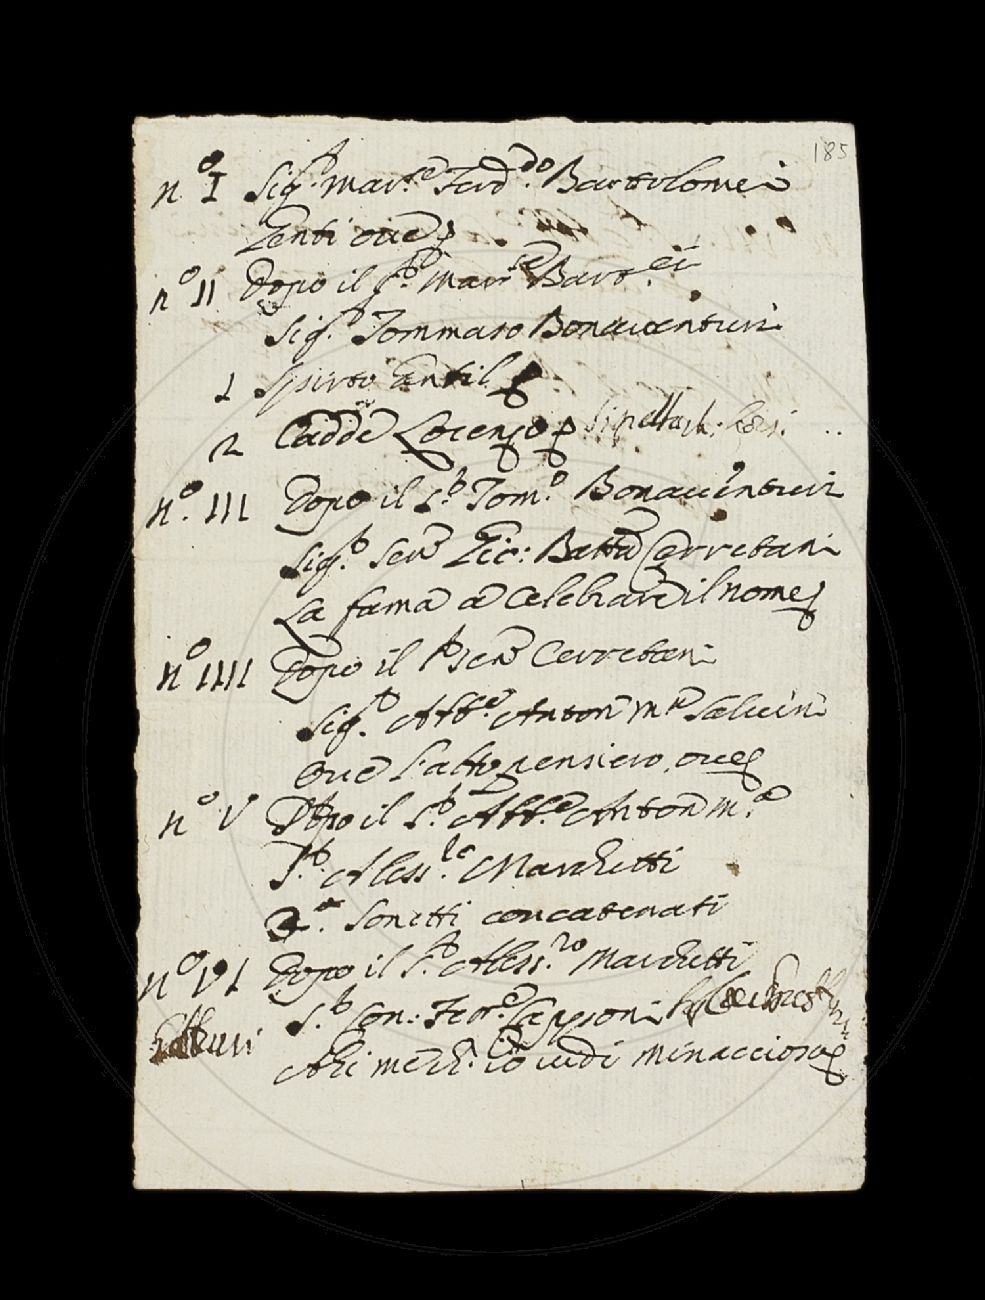 185
n.º I Sig.r mar.e Ferd.do Bartolomei
Genti ove
n.º II Dopo il S.r mar.se Barto.ei
Sig.r Tommaso Bonaventuri
1 Spirto Gentil
2 Cadde Lorenzo
n.º III Dopo il S.r Tom.o Bonaventuri
Sig.r Sen.e Gio: Batta Cerretani
La fama à Celebrare il nome
n.º IIII Dopo il S.r Sen.e Cerretani
Sig.r Abb.e Anton m.a Salvini
Ove l'alto pensiero, ove
n.º V Dopo il S.r Abb.e Anton m.a
S.r Aless.ro Marchetti
3. Sonetti concatenati
n.º VI Dopo il S.r Aless.ro Marchetti
S.r Con: Fer.o Capponi
Ahi meh! io vidi minacciosa